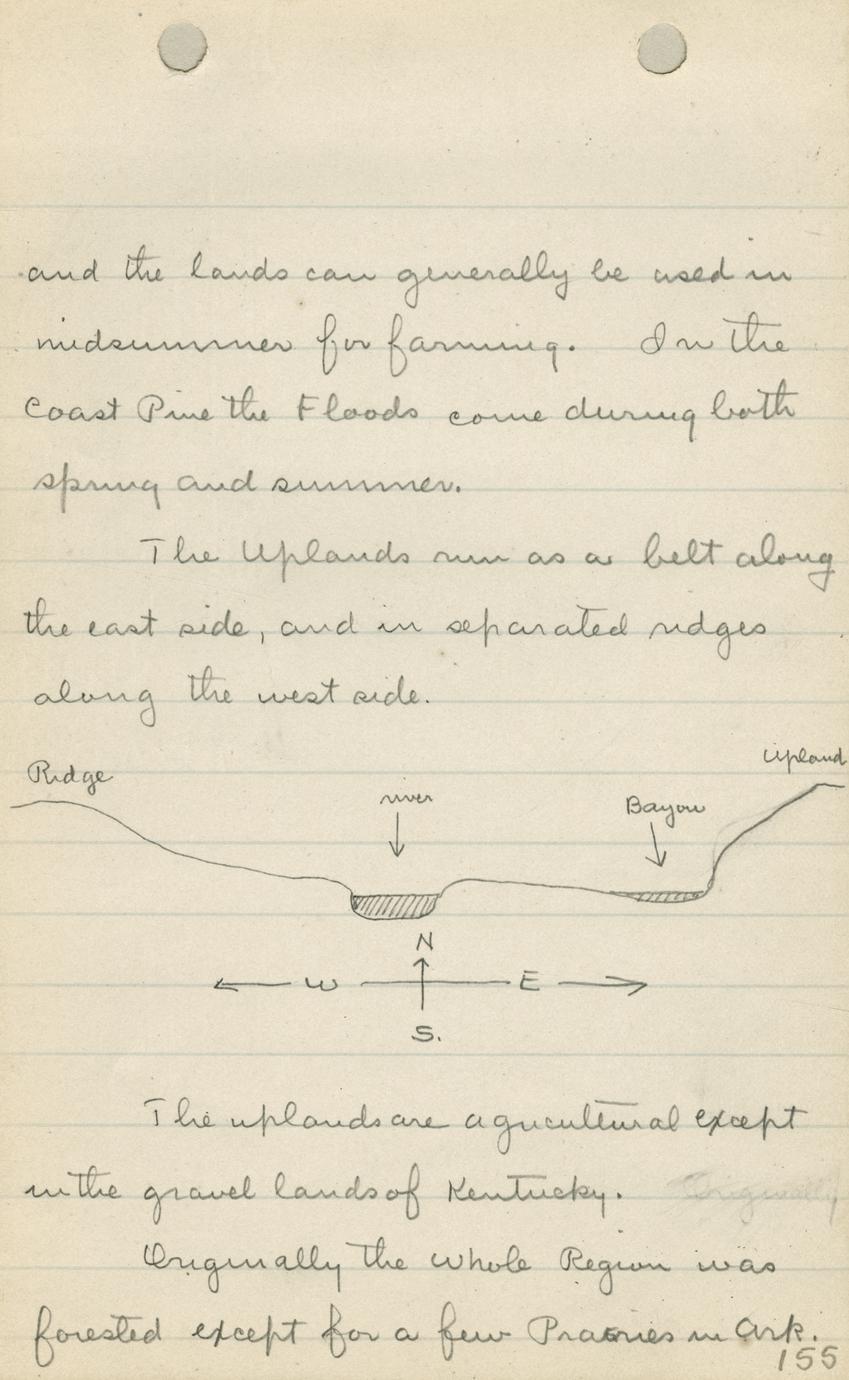 and the lands can generally be used in
midsummer for farming. In the
Coast Pine the Floods come during both
spring and summer.
The Uplands run as a belt along
the east side, and in separated ridges
along the west side.
Upland
Ridge
river
Bayou
N
W E
S.
The uplands are agricultural except
in the gravel lands of Kentucky. Originally
Originally the whole Region was
forested except for a few Prairies in Ark.
155